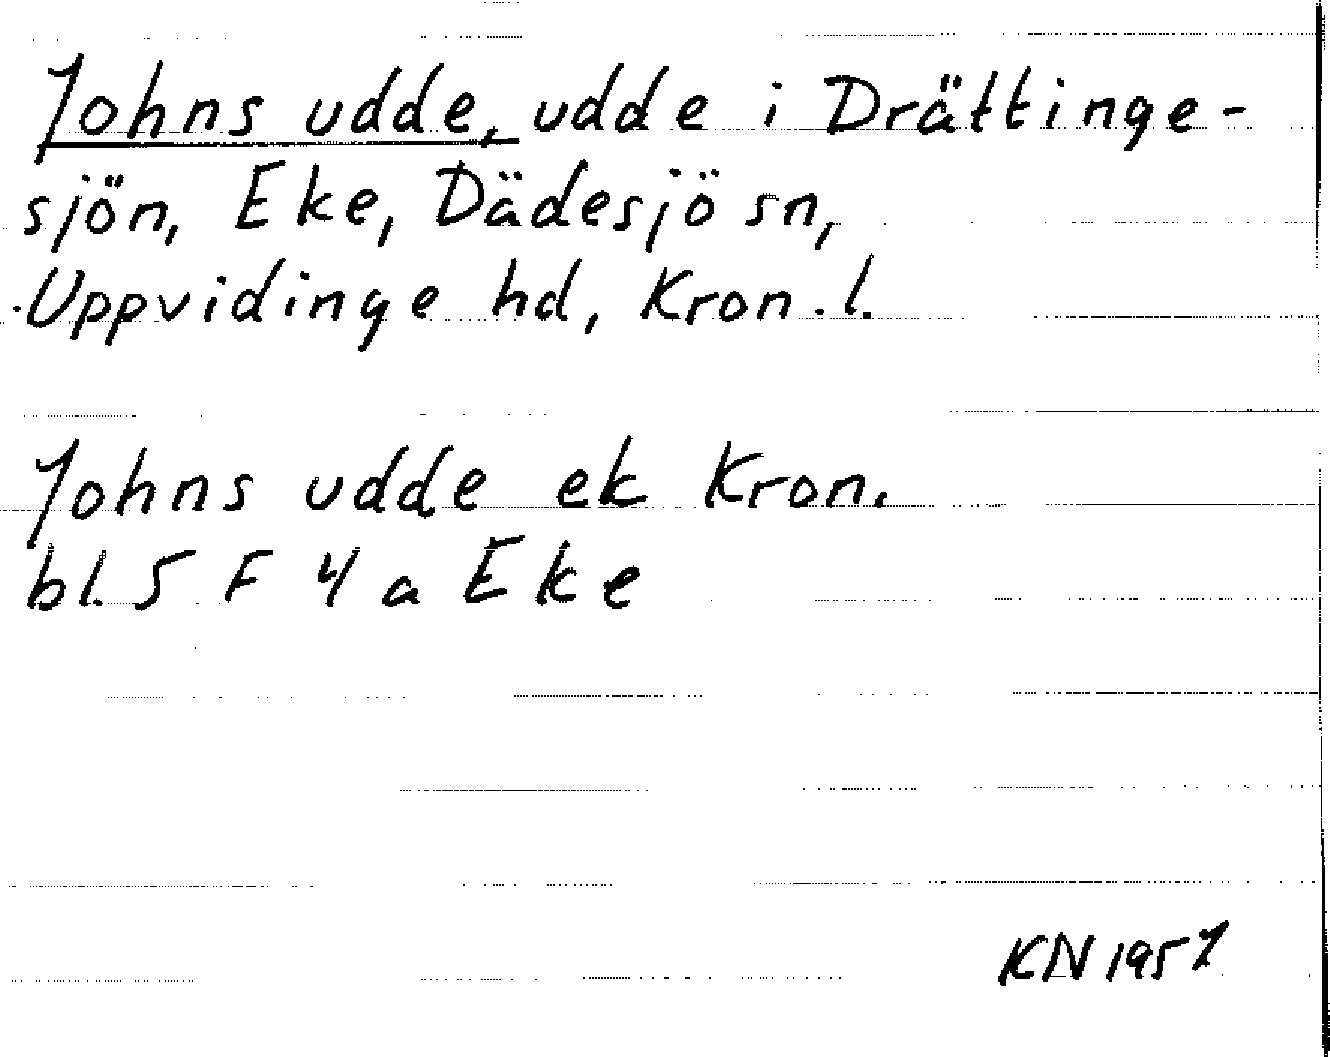 Johns udde, udde i Drättinge-
sjön, Eke, Dädesjö sn,
Uppvidinge hd, Kron. l.
Johns udde ek Kron.
bl. 5 F 4 a Eke
KN 1957